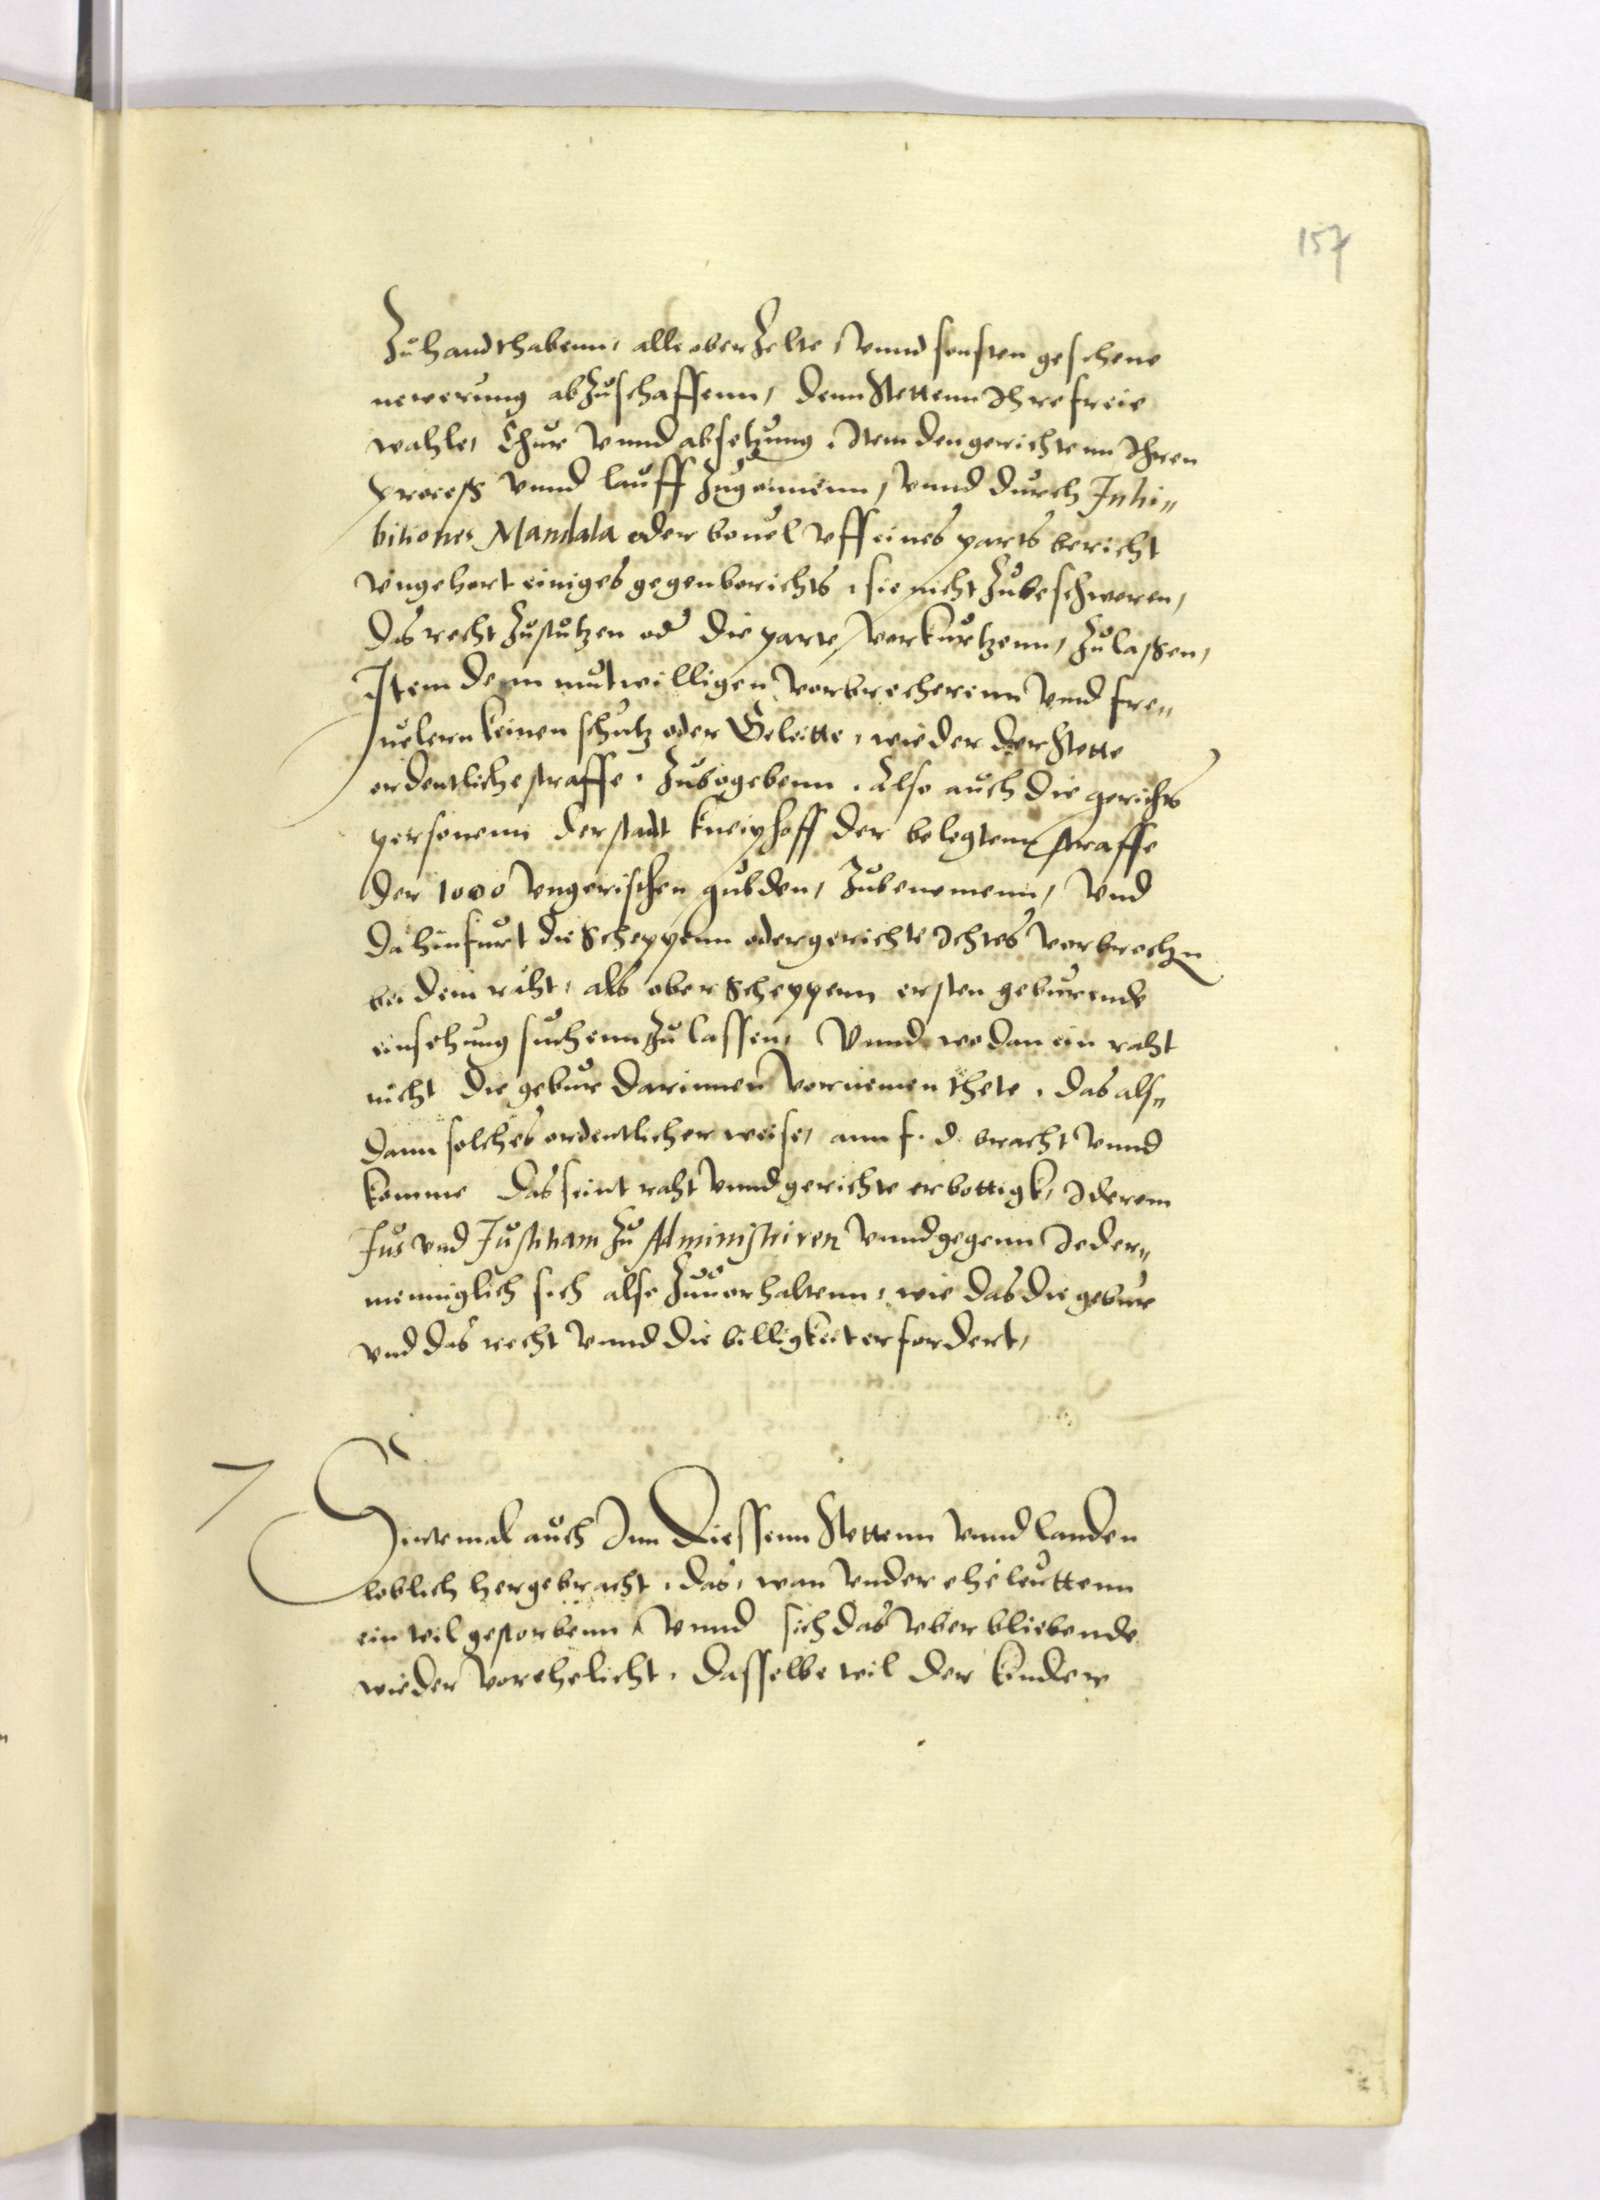 157
Zu handthabenn, alle oberZelte, vnnd sonsten geschene
newerung abZuschaffenn, denn Stettenn Ihre freie
wahle, Chur vnnd absetzung, Item den gerichtenn Ihren
proceß vnnd lauff Zugonnenn, vnnd durch Inhi„
bitiones Mandata oder beuel vff eines parts bericht
vngehort einiges gegenberichts, sie nicht Zubeschweren,
das recht Zustutzen od die parte, verkurtzenn, Zulaßen,
Item denn mutwilligen vorbrecherenn vnnd fre„
uelern keinen schutz oder Geleitte, wieder der Stette
ordentliche straffe, Zubegebenn, Also auch die gerichts
personenn der stadt kneiphoff der belegtenn straffe
der 1000 vngerischen gulden, Zubenemenn, vnd
da hinfurt die Scheppenn oder gerichte Ichtes vorbrechn
bei dem raht, als ober Scheppenn ersten geburende
einsehung suchenn Zu lassen, Vnnd wo dan ein raht
nicht die gebur darinnen vornemen thete, das als„
dann solches ordentlicher weise, ann f. d. bracht vnnd
komme das seint raht vnnd gerichte erbottigk, Iderem
Jus vnd Justitiam Zu Administriren vnnd gegenn Ieder„
menniglich sich also Zuuorhaltenn, wie das die gebur
vnd das recht vnnd die billigkeit erfordert,
7
Sintemal auch Inn Diessenn Stettenn vnnd landen
loblich hergebracht, das, wan vnder eheleuttenn
ein teil gestorbenn, vnnd sich das vberbliebende
wieder vorehelicht, dasselbe teil der kinder